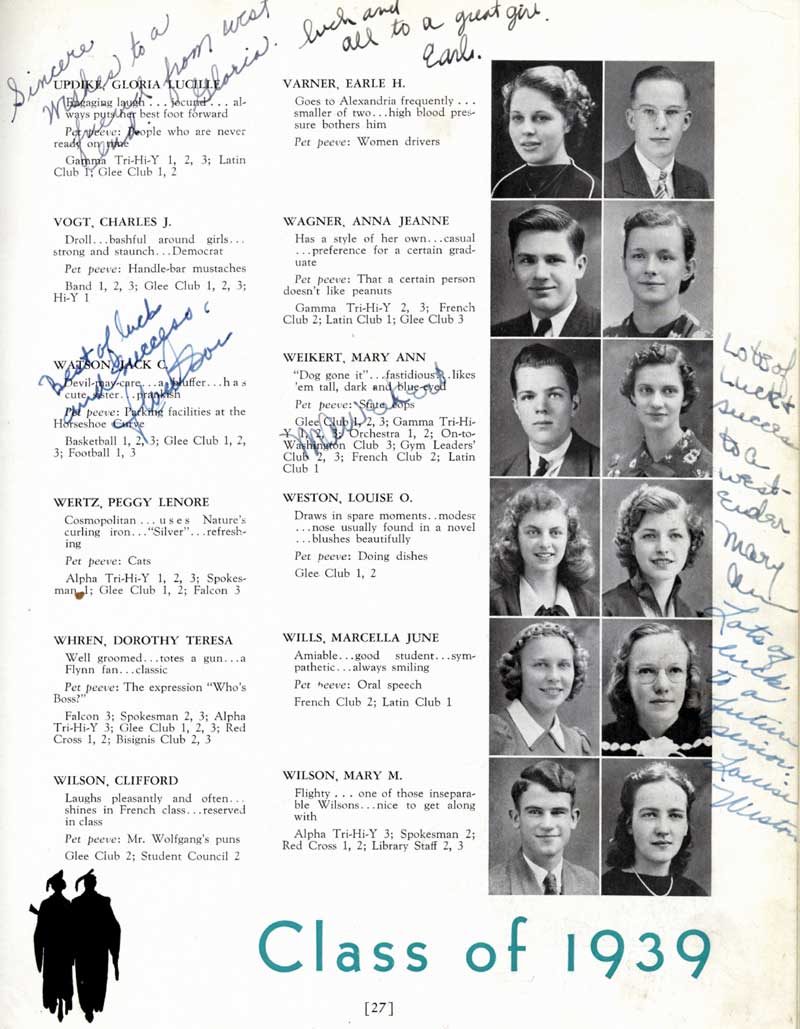 Sincere
Wishes to a
friend from west
end. Gloria.
luck and
all to a great girl.
Earle.
UPDIKE, GLORIA LUCILLE
Engaging laugh . . . jocund . . . al-
ways puts her best foot forward
Pet peeve: People who are never
ready on time
Gamma Tri-Hi-Y 1, 2, 3; Latin
Club 1; Glee Club 1, 2
VARNER, EARLE H.
Goes to Alexandria frequently . . .
smaller of two...high blood pres-
sure bothers him
Pet peeve: Women drivers
VOGT, CHARLES J.
Droll...bashful around girls...
strong and staunch...Democrat
Pet peeve: Handle-bar mustaches
Band 1, 2, 3; Glee Club 1, 2, 3;
Hi-Y 1
WAGNER, ANNA JEANNE
Has a style of her own...casual
...preference for a certain grad-
uate
Pet peeve: That a certain person
doesn't like peanuts
Gamma Tri-Hi-Y 2, 3; French
Club 2; Latin Club 1; Glee Club 3
Best of luck
and success.
Jack Watson
WATSON, JACK C.
Devil-may-care...a bluffer...has
cute sister...prankish
Pet peeve: Parking facilities at the
Horseshoe Curve
Basketball 1, 2, 3; Glee Club 1, 2,
3; Football 1, 3
WEIKERT, MARY ANN
"Dog gone it"...fastidious...likes
'em tall, dark and blue-eyed
Pet peeve: State cops
Glee Club 1, 2, 3; Gamma Tri-Hi-
Y 1, 2, 3; Orchestra 1, 2; On-to-
Washington Club 3; Gym Leaders'
Club 2, 3; French Club 2; Latin
Club 1
WERTZ, PEGGY LENORE
Cosmopolitan . . . uses Nature's
curling iron..."Silver"...refresh-
ing
Pet peeve: Cats
Alpha Tri-Hi-Y 1, 2, 3; Spokes-
man 1; Glee Club 1, 2; Falcon 3
WESTON, LOUISE O.
Draws in spare moments..modest
...nose usually found in a novel
...blushes beautifully
Pet peeve: Doing dishes
Glee Club 1, 2
WHREN, DOROTHY TERESA
Well groomed...totes a gun...a
Flynn fan...classic
Pet peeve: The expression "Who's
Boss?"
Falcon 3; Spokesman 2, 3; Alpha
Tri-Hi-Y 3; Glee Club 1, 2, 3; Red
Cross 1, 2; Bisignis Club 2, 3
WILLS, MARCELLA JUNE
Amiable...good student...sym-
pathetic...always smiling
Pet peeve: Oral speech
French Club 2; Latin Club 1
WILSON, CLIFFORD
Laughs pleasantly and often...
shines in French class...reserved
in class
Pet peeve: Mr. Wolfgang's puns
Glee Club 2; Student Council 2
WILSON, MARY M.
Flighty . . . one of those insepara-
ble Wilsons...nice to get along
with
Alpha Tri-Hi-Y 3; Spokesman 2;
Red Cross 1, 2; Library Staff 2, 3
Lots of
luck &
success
to a
west-
Ender
Mary
Ann
Lots of
luck
to a
future
senior.
Louise
Weston
Class of 1939
[27]